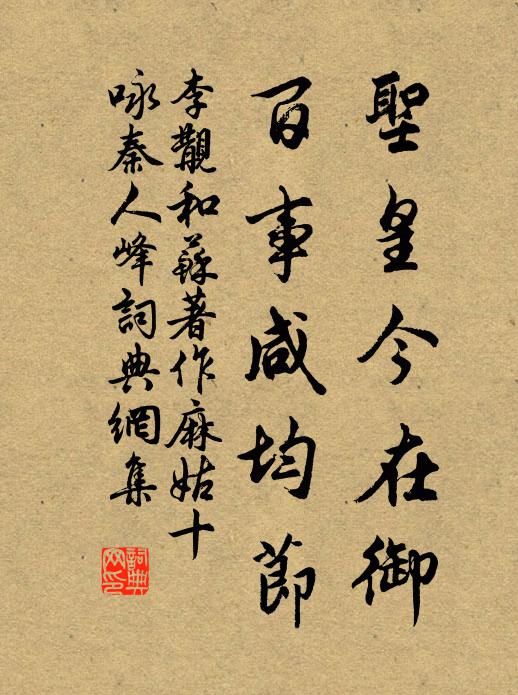 聖皇今在御
百事咸均節
李覯和蘇著作麻姑十
咏秦人峰詞典網集
詞典網印